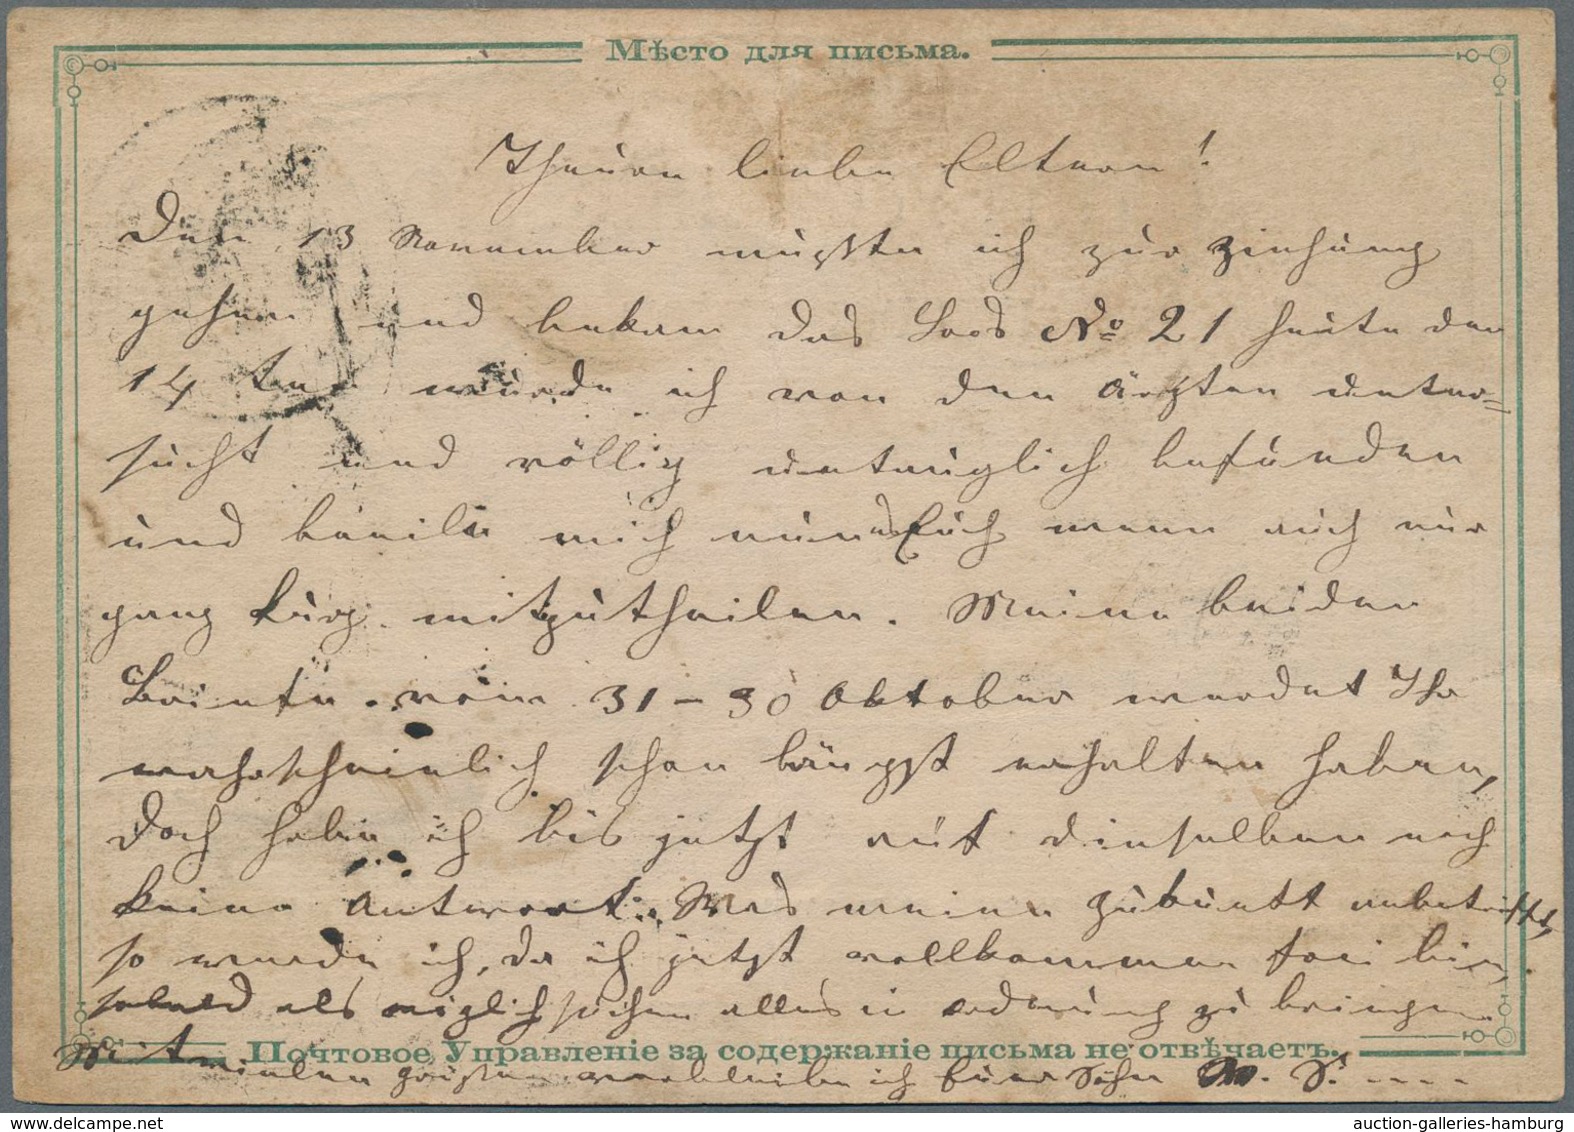 Мѣсто для письма.
Theure liebe Eltern!
Den 13 November mußte ich zur Ziehung
gehen und bekam das Loos № 21 heute den
14 ten wurde ich von den Ärzten unter=
sucht und völlig untauglich befunden
und beeile mich nun es Euch wenn auch nur
ganz kurz mitzutheilen. Meine beiden
Briefe vom 31 – 30 Oktober werdet Ihr
wahrscheinlich schon längst erhalten haben,
doch habe ich bis jetzt auf dieselben noch
keine Antwort. Was meine Zukunft anbetrifft,
so werde ich, da ich jetzt vollkommen frei bin,
sobald als möglich suchen alles in Ordnung zu bringen.
Почтовое Управленіе за содержаніе письма не отвѣчаетъ.
Mit vielen Grüßen verbleibe ich Euer Sohn M. S. ....
auction-galleries-hamburg